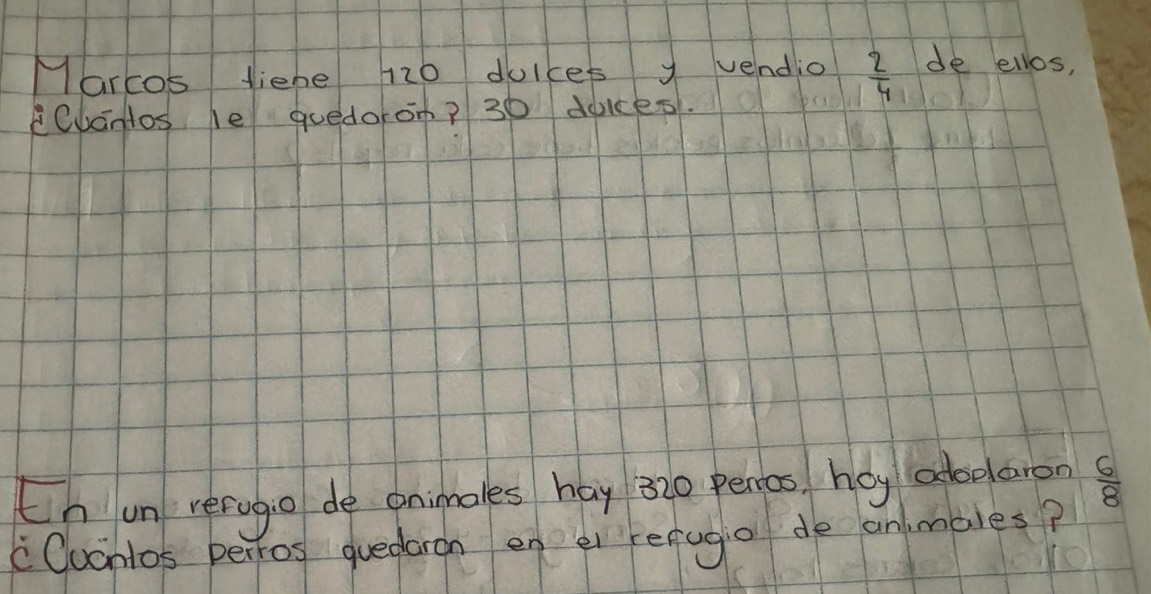 Marcos tiene 120 dulces y vendio 2/4 de ellos,
¿Cuántos le quedarón? 30 dulces.
En un refugio de animales hay 320 perros, hoy adoptaron 6/8
¿Cuántos perros quedaron en el refugio de animales?